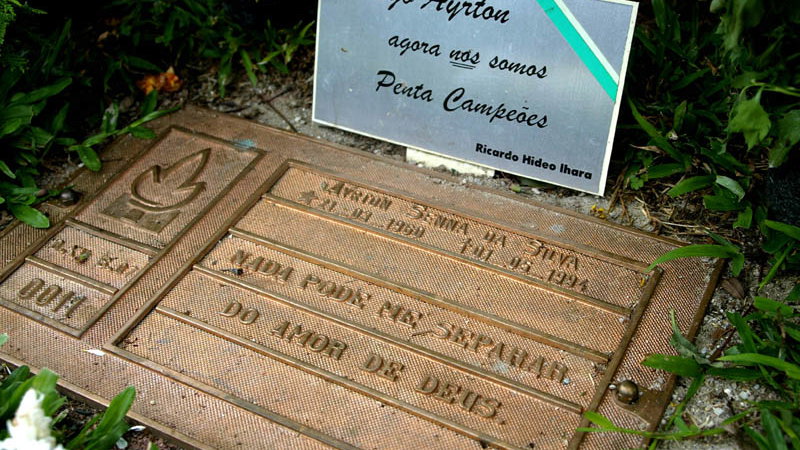 Ayrton
agora nós somos
Penta Campeões
Ricardo Hideo Ihara
AYRTON SENNA DA SILVA
21.03.1960 01.05.1994
NADA PODE ME SEPARAR
DO AMOR DE DEUS.
0011